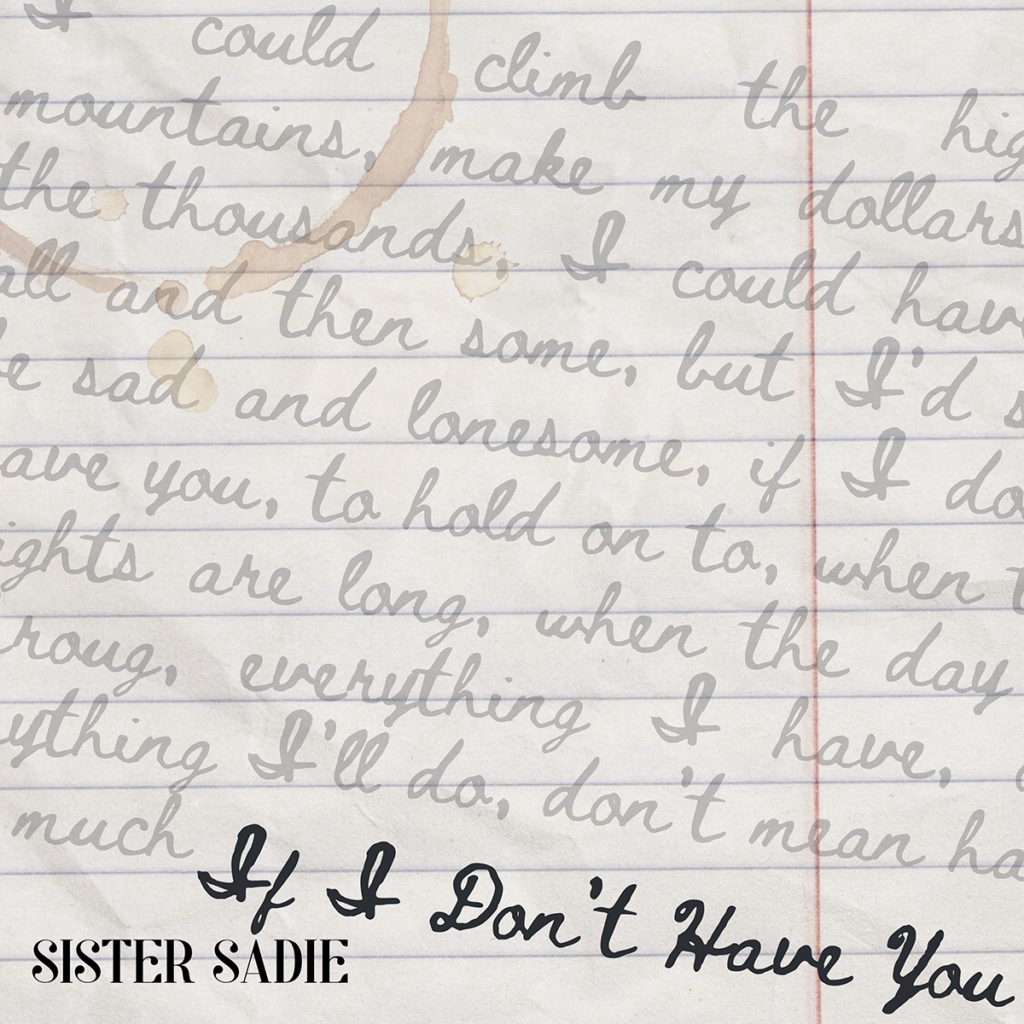 I could climb the hig
mountains, make my dollars
the thousands, I could hav
all and then some, but I'd s
e sad and lonesome, if I do
ave you, to hold on to, when t
ights are long, when the day
roug, everything I have,
ything I'll do, don't mean ha
much
If I Don't Have You
SISTER SADIE